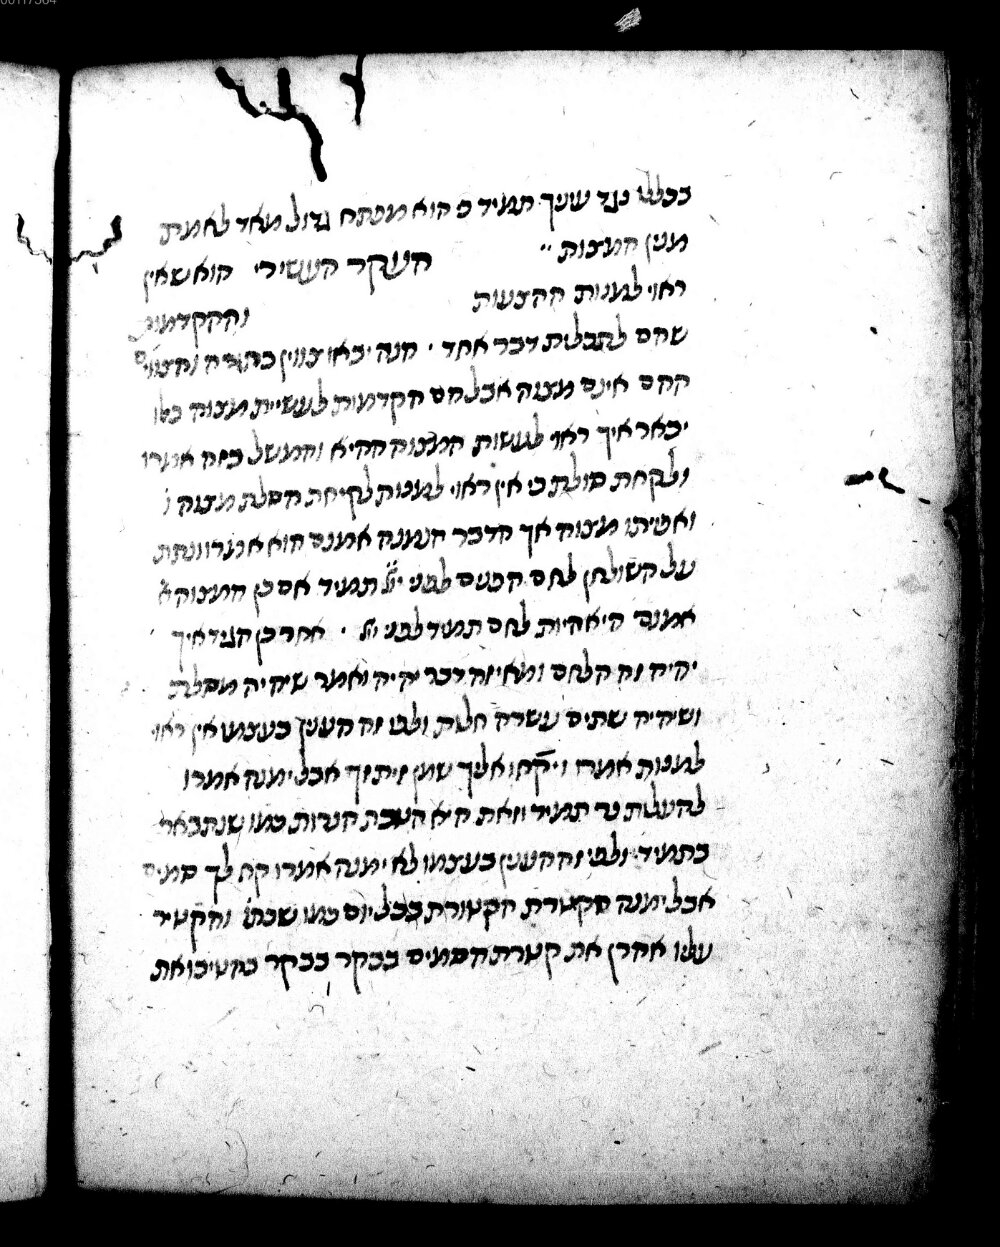 בכללו נגד עיניך תמיד כי הוא מפתח גדול מאד לאמת
מנין המצות
העקר העשירי הוא שאין
ראוי למנות ההצעות
וההקדמות
שהם לתכלית דבר אחד · הנה יבאו צווין בתורה והצווים
ההם אינם מצוה אבל הם הקדמות לעשיית מצוה כאלו
יבאר איך ראוי לעשות המצוה ההיא והמשל בזה אמרו
ולקחת סולת כי אין ראוי למנות לקיחת הסלת מצוה
ואפיתו מצוה אך הדבר הנמנה אמנם הוא אמרו ונתת
על השולחן לחם הפנים לפני ייי תמיד אם כן המצוה
אמנם היא היות לחם תמיד לפני ייי · אחר כן הגיד איך
יהיה זה הלחם ומאיזה דבר יהיה ואמר שיהיה מסלת
ושיהיה שתים עשרה חלות ולפי זה הענין בעצמו אין ראוי
למנות אמרו ויקחו אליך שמן זית זך אבל ימנה אמרו
להעלות נר תמיד וזאת היא הטבת הנרות כמו שנתבאר
בתמיד · ולפי זה הענין בעצמו לא ימנה אמרו קח לך סמים
אבל ימנה הקטרת הקטורת בכל יום כמו שכתו' והקטיר
עליו אהרן את קטרת הסמים בבקר בבקר בהטיבו את